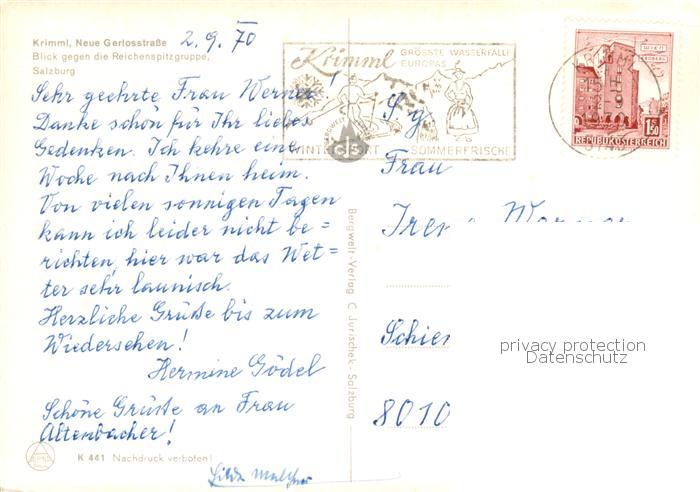 Krimml, Neue Gerlosstraße
Blick gegen die Reichenspitzgruppe,
Salzburg
2.9.70
Sehr geehrte Frau Werner!
Danke schön für Ihr liebes
Gedenken. Ich kehre eine
Woche nach Ihnen heim.
Von vielen sonnigen Tagen
kann ich leider nicht be=
richten, hier war das Wet=
ter sehr launisch.
Herzliche Grüße bis zum
Wiedersehen!
Hermine Gödel
Schöne Grüße an Frau
Altenbacher!
K 441 Nachdruck verboten!
Bergwelt-Verlag C. Jurischek - Salzburg
Krimml
GRÖSSTE WASSERFÄLLE
EUROPAS
WINTERSPORT
SOMMERFRISCHE
WIEN
ERDBERG
1.50
REPUBLIK ÖSTERREICH
S. g.
Frau
8010
privacy protection
Datenschutz